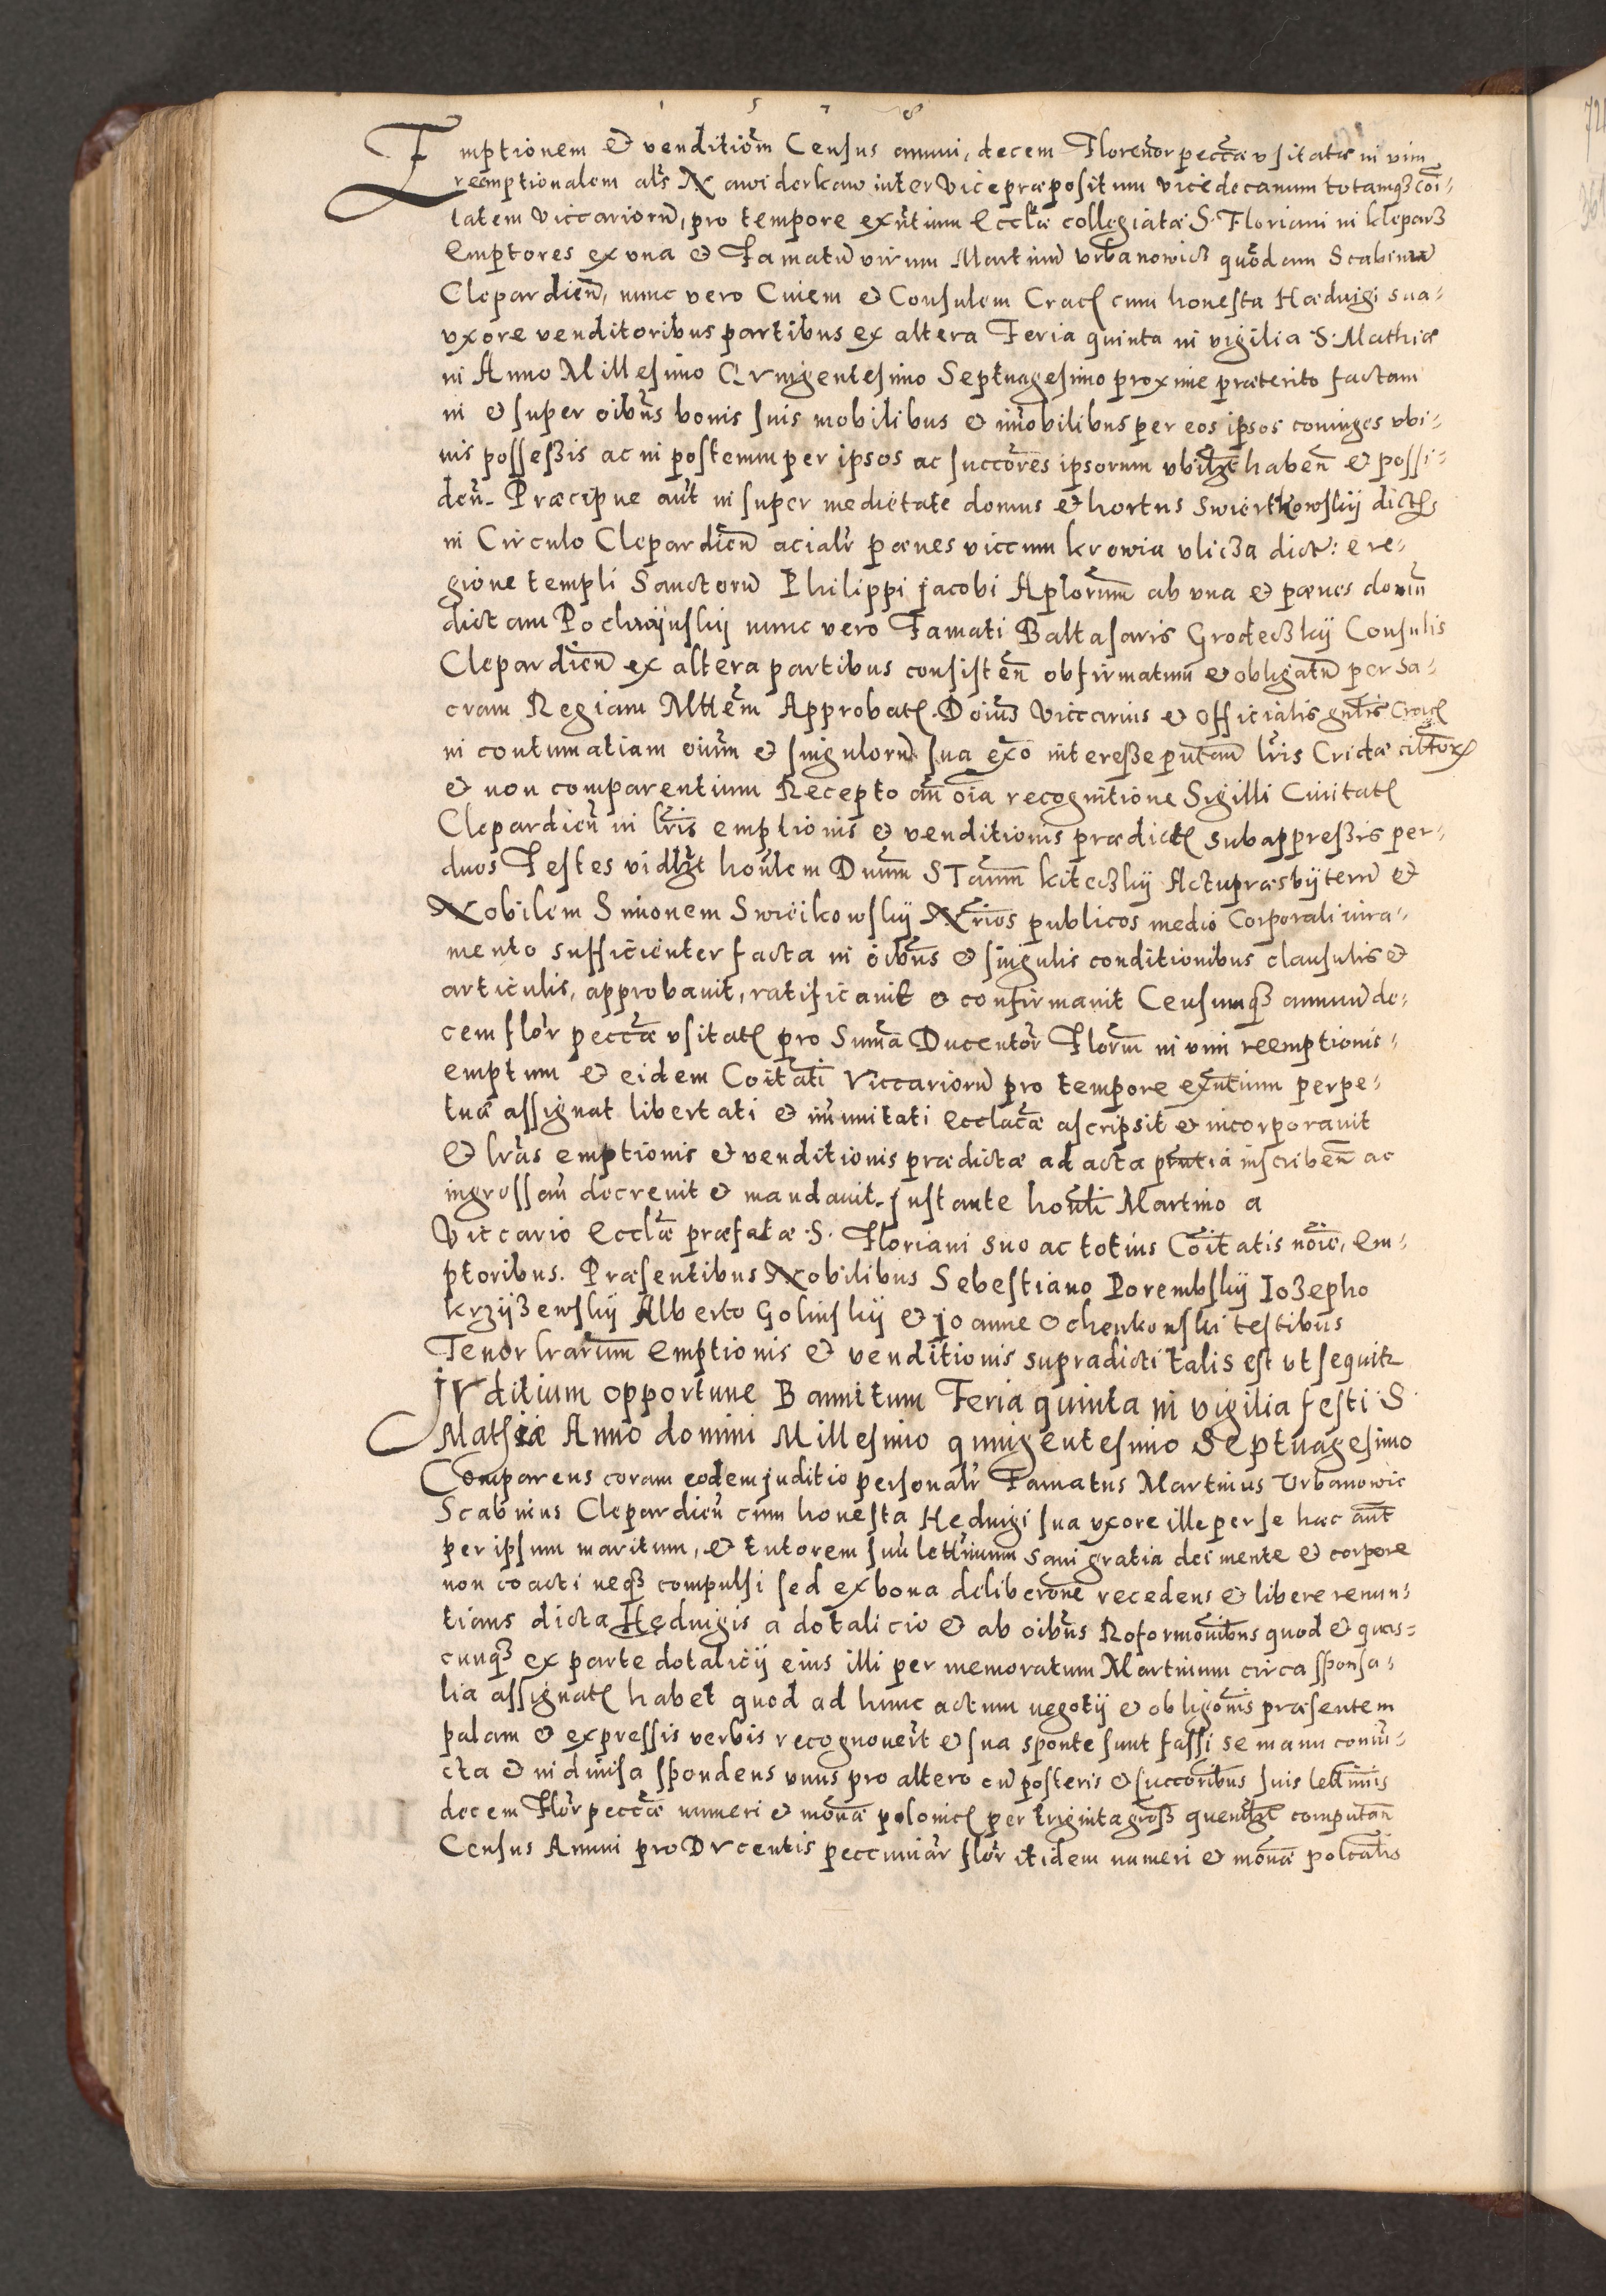 1 5 7 8
Emptionem et venditiom Census annui, decem Florenor peccæ usitatæ in vim
reemptionalem als Na widerkaw inter Vicepræpositum vicedecanum totamqꝫ coi-
tatem Viccarioru, pro tempore exntium Ecclæ collegiatæ S. Floriani in kleparz
Emptores ex una et Famatu virum Martinu Urbanowicz quodam Scabinu
Clepardien, nunc vero Civem et Consulem Crac cum honesta Hædvigi sua-
uxore venditoribus partibus ex altera Feria quinta in vigilia S. Mathiæ
in Anno Millesimo Quingentesimo Septuagesimo proxime præterito factam
in et super oibus bonis suis mobilibus et imobilibus per eos ipsos coniuges ubi-
vis possessis ac in postemm per ipsos ac succores ipsorum ubilꝫt haben et possi-
den. Præcipue aut in super medietate domus et hortus Swiertkowskij dict
in Circulo Clepardien acialr pænes viccum krowia ulicza dict: e re-
gione templi Sanctoru Philippi jacobi Aplorum ab una et pænes domu
dictam Pochwijnskij nunc vero Famati Baltasaris Grodeczkij Consulis
Clepardien ex altera partibus consisten obfirmatum et obligatu per Sa-
cram Regiam Mttem Approbat. Doius Viccarius et Officialis gnlis Crac
in contumatiam oium et singuloru sua exo interesse putan lris Cridæ cittor
et non comparentium Recepto an oia recognitione Sigilli Civitat
Clepardien in lris emptionis et venditionis prædict subappressis per-
duos Testes vidlꝫt honlem Dnum STanm kiteczkij Actupræsbijteru et
Nobilem Simonem Swieikowskij Nrios publicos medio Corporali iura-
mento sufficienter facta in oibus et singulis conditionibus clausulis et
articulis, approbavit, ratificavit et confirmavit Censumqꝫ annuu de-
cem flor peccæ usitat pro Suma Ducentor Florum in vim reemptionis-
emptum et eidem Coitati Viccarioru pro tempore exntium perpe-
tuæ assignat libertati et imunitati Ecclacæ ascripsit et incorporavit
et lras emptionis et venditionis prædictæ ad acta pntia inscriben ac
ingrossan decrevit et mandavit. Instante honli Martino a
Viccario Ecclæ præfatæ S. Floriani suo ac totius Coitatis noie, Em-
ptoribus. Præsentibus Nobilibus Sebestiano Porembskij Iozepho
krzijzewskij Alberto Golinskij et joanne Ochenkowski testibus
Tenor lrarum Emptionis et venditionis supradicti talis est ut sequitr
Juditium opportune Bannitum Feria quinta in vigilia festi S
Mathiæ Anno domini Millesimo quingentesimo Septuagesimo
Comparens coram eodem juditio personalr Famatus Martinus Urbanowic
Scabinus Clepardien cum honesta Hedvigi sua uxore ille per se hæc aut
per ipsum maritum, et tutorem suu lettimum sani gratia dei mente et corpore
non coacti neqꝫ compulsi sed ex bona deliberone recedens et libere renun-
tians dicta Hedvigis a dotalicio et ab oibus Reformonibus quod et quas-
cunqꝫ ex parte dotalicij eius illi per memoratum Martinum circa sponsa-
lia assignat habet quod ad hunc actum negotij et obligonis præsentem
palam et expressis verbis recognovert et sua sponte sunt fassi se manu coniu-
cta et indivisa spondens unus pro altero cu posteris et succoribus suis lettimis
decem Flor peccæ numeri et monæ polonic per triginta gross quemlꝫt computan
Census Annui pro Ducentis peccuniar flor itidem numeri et monæ polcalis